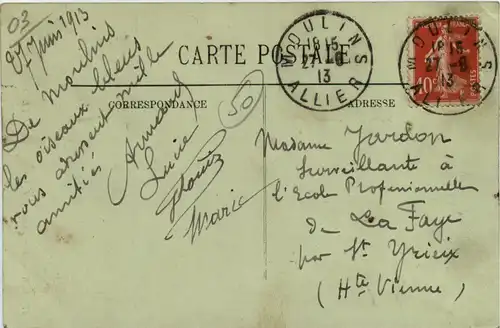 03
27 Juin 1913
CARTE POSTALE
CORRESPONDANCE
ADRESSE
MOULINS
18 15
27 -6
13
ALLIER
10c
POSTES
MOULINS
18 15
27 -6
13
ALLIER
50
De Moulins
les oiseaux bleus
vous adressent mille
amitiés
Armand
Lucie
Marie
Madame Jardon
Surveillante à
l'Ecole Professionnelle
de La Faye
par St Yrieix
(Hte Vienne)